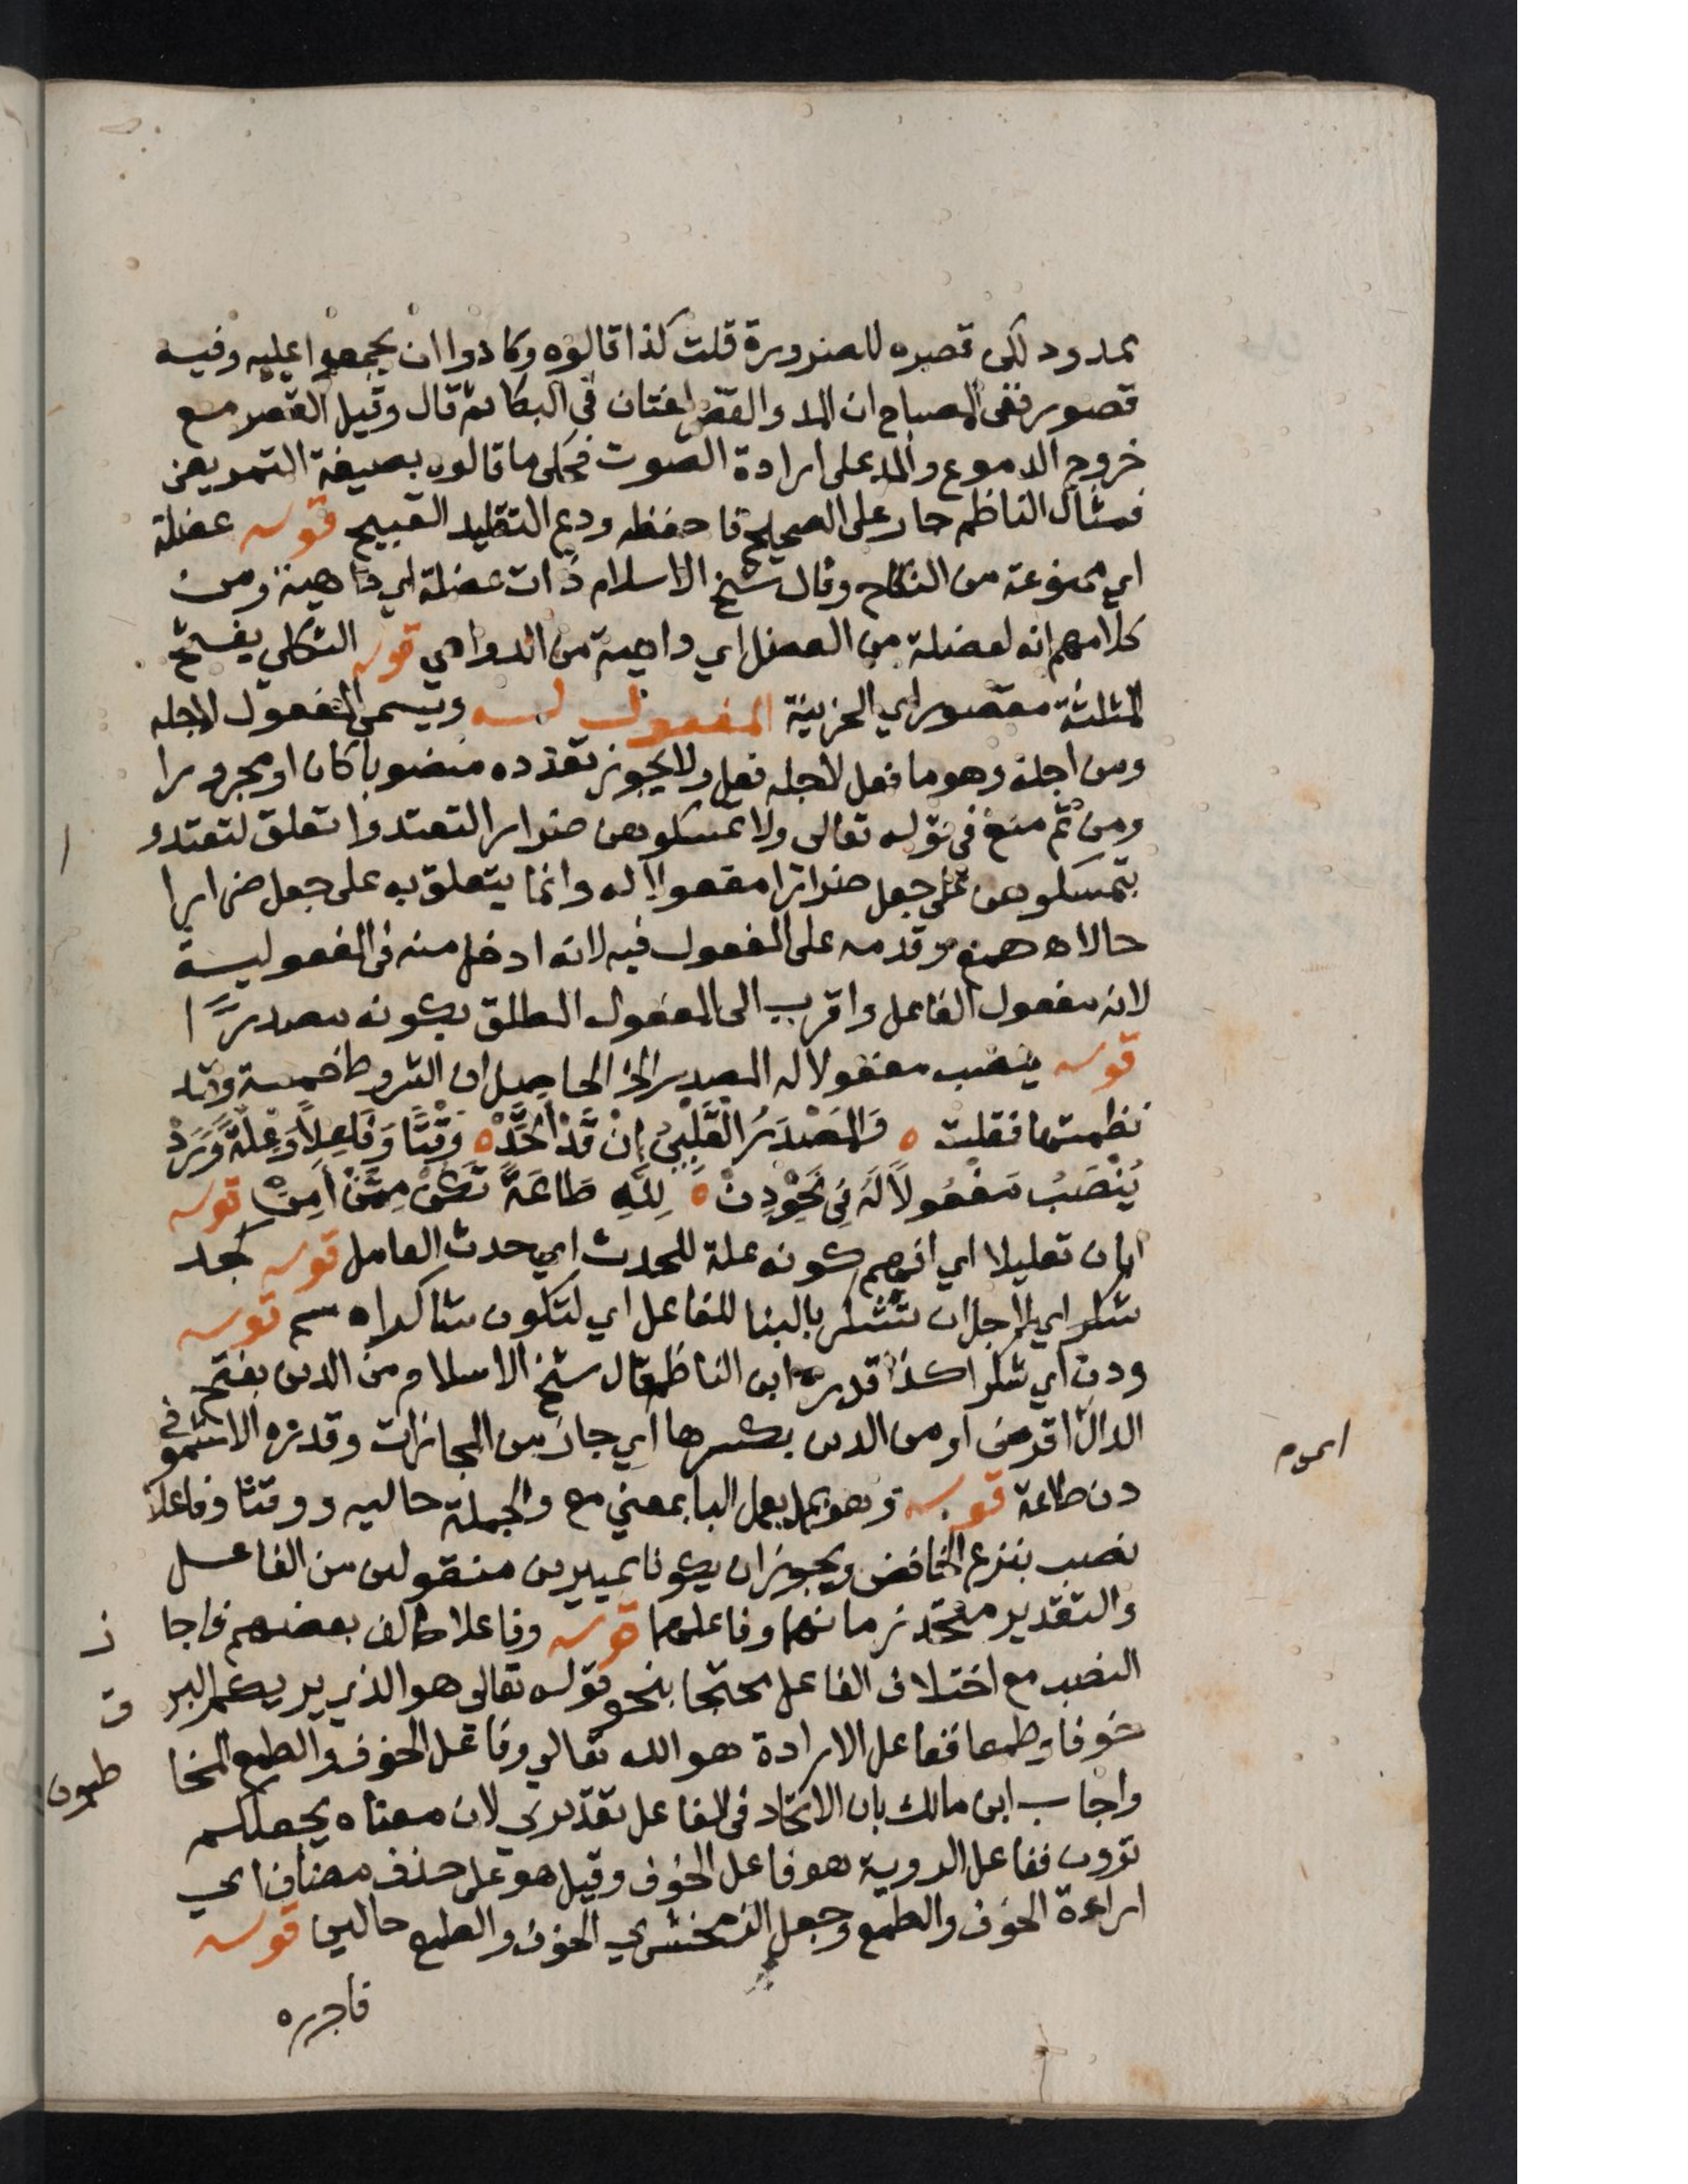 ممدود لكن قصره للضرورة قلت كذا قالوه وكادوا ان يجمعوا عليه وفيه
قصور ففى المصباح ان المد والقصر لغتان فى البكا ثم قال وقيل القصر مع
خروج الدموع والمد على ارادة الصوت فحكى ما قالوه بصيغة التمريض
فمثال الناظم جار على الصحيح فاحفظه ودع التقليد القبيح قوله عضلة
اي ممنوعة من النكاح وقال شيخ الاسلام ذات عضلة اي داهية ومن
كلامهم انه لعضلة من العضل اي داهية من الدواهي قوله الثكلي بفتح
المثلثة مقصور اي الحزينة المفعول له ويسمى المفعول لاجله
ومن اجله وهو ما فعل لاجله فعل ولا يجوز تعدده منصوبا كان او مجرورا
ومن ثم منع في قوله تعالى ولا تمسكوهن ضرارا لتعتدوا تعلق لتعتدو
بتمسكوهن على جعل ضرارا مفعولا له وانما يتعلق به على جعل ضرارا
حالا اه همع وقدمه على المفعول فيه لانه ادخل منه فى المفعولية
لانه مفعول الفاعل واقرب الى المفعول المطلق بكونه مصدرًا
قوله ينصب مفعولا له المصدر الخ الحاصل ان الشروط خمسة وقد
نظمتها فقلت ه وَالمَصْدَرُ القَلْبِيُّ إنْ قَدْ اتَّحَدْ ه وَقْتًا وَفَاعِلاً وَعِلَّةً وَرَدْ
يُنْصَبُ مَفْعُولاً لَهُ فِي نَحْوِ دِنْ ه لِلَّهِ طَاعَةً تَكُنْ مِمَّنْ أَمِنْ قوله
ابان تعليلا اي افهم كونه علة للحدث اي حدث العامل قوله كجد
شكرا اي لاجل ان تشكر بالبنا للفاعل اي لتكون شاكرا ه سم قوله
ودن اي شكرا كذا قدره ابن الناظم قال شيخ الاسلام من الدين بفتح
الدال اقرض او من الدين بكسرها اي جاز من المجازات وقدره الاشمونى
دن طاعة قوله وهو بما يعمل البا بمعني مع والجملة حاليه ووقتا وفاعلا
نصب بنزع الخافض ويجوز ان يكونا تمييزين منقولين من الفاعل
والتقدير متحد زمانهما وفاعلهما قوله وفاعلا خالف بعضهم فاجا
ز
النصب مع اختلاف الفاعل محتجا بنحو قوله تعالى هو الذي يريكم البر
ق
خوفا وطمعا ففاعل الارادة هو الله تعالي وفاعل الخوف والطمع المخا
طبون
واجاب ابن مالك بان الاتحاد فى الفاعل تقديري لان معناه يجعلكم
ترون ففاعل الروية هو فاعل الخوف وقيل هو على حذف مضاف اي
اراءة الخوف والطمع وجعل الزمخشري الخوف والطمع حالين قوله
فاجرره